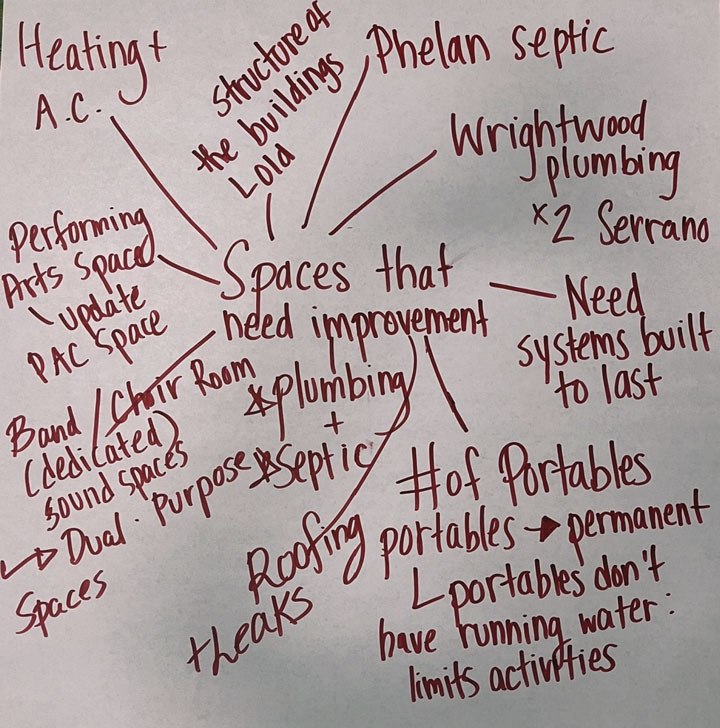 Heating +
A.C.
Structure of
the buildings
Lold
Phelan septic
Wrightwood
plumbing
x2 Serrano
Performing
Arts Space
update
PAC Space
Spaces that
need improvement
Need
systems built
to last
Band / Choir Room
(dedicated)
sound spaces
→ Dual-Purpose
Spaces
*plumbing
+
*Septic
Roofing
+Leaks
# of Portables
portables → permanent
L portables don't
have running water:
limits activities